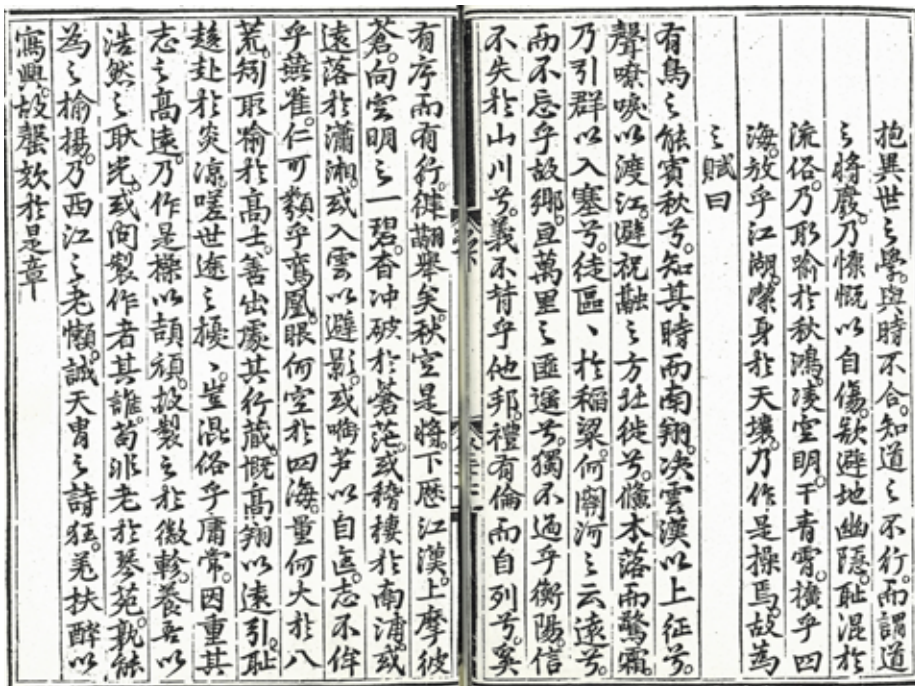 抱異世之學。與時不合。知道之不行。而謂道
之將廢。乃慷慨以自傷。欲避地幽隱。耻混於
流俗。乃取喻於秋鴻。凌空明。干青霄。擴乎四
海。放乎江湖。潔身於天壤。乃作是操焉。故為
之賦曰
有鳥之能賓秋兮。知其時而南翔。決雲漢以上征兮。
聲嘹唳以渡江。避祝融之方壯徙兮。儵木落而驚霜。
乃引群以入塞兮。徒區、於稻粱。何關河之云遠兮。
而不忘乎故鄉。亘萬里之匪遥兮。獨不過乎衡陽。信
不失於山川兮。義不背乎他邦。禮有倫而自列兮。奚
有序而有行。肆翾舉矣。秋空是將。下歷江漢。上摩彼
蒼。向空明之一碧。杳冲破於蒼茫。或稽棲於南浦。或
遠落於瀟湘。或入雲以避影。或啣芦以自迯。志不侔
乎燕雀。仁可類乎鸞凰。眼何空於四海。量何大於八
荒。矧取喻於高士。善出處其行藏。慨高翔以遠引。耻
趍赴於炎凉。嗟世途之擾、豈混俗乎庸常。因重其
志之高遠。乃作是操以頡頏。被製之於徽軫。養吾以
浩然之耿光。或問製作者其誰。苟非老於琴苑。孰能
為之揄揚。乃西江之老懶。誠天冑之詩狂。羌扶醉以
寫興。故罄欬於是章